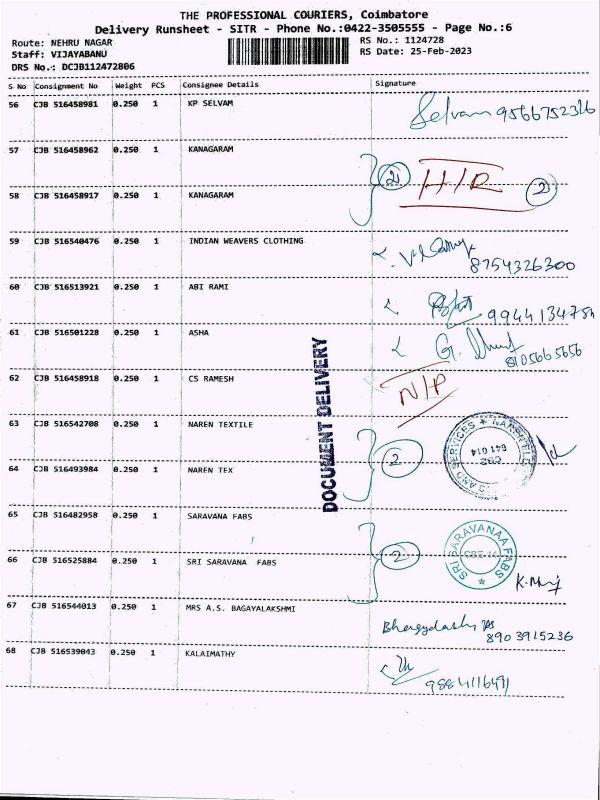 THE PROFESSIONAL COURIERS, Coimbatore
Delivery Runsheet - SITR - Phone No.:0422-3505555 - Page No.:6
Route: NEHRU NAGAR
Staff: VIJAYABANU
DRS No.: DCJB112472806
RS No.: 1124728
RS Date: 25-Feb-2023
S No Consignment No Weight PCS Consignee Details Signature
56 CJB 516458981 0.250 1 KP SELVAM Selvam 9566752326
57 CJB 516458962 0.250 1 KANAGARAM
2 H/R 2
58 CJB 516458917 0.250 1 KANAGARAM
59 CJB 516540476 0.250 1 INDIAN WEAVERS CLOTHING
8754326300
60 CJB 516513921 0.250 1 ABI RAMI
61 CJB 516501228 0.250 1 ASHA G.
8105665656
62 CJB 516458918 0.250 1 CS RAMESH N/P
DOCUMENT DELIVERY
63 CJB 516542708 0.250 1 NAREN TEXTILE
2
AND SERVICES ★
CBE
641 014
64 CJB 516493984 0.250 1 NAREN TEX
65 CJB 516482958 0.250 1 SARAVANA FABS
2
SRI SARAVANAA FABS
★
66 CJB 516525884 0.250 1 SRI SARAVANA FABS
67 CJB 516544013 0.250 1 MRS A.S. BAGAYALAKSHMI
8903915236
68 CJB 516539043 0.250 1 KALAIMATHY